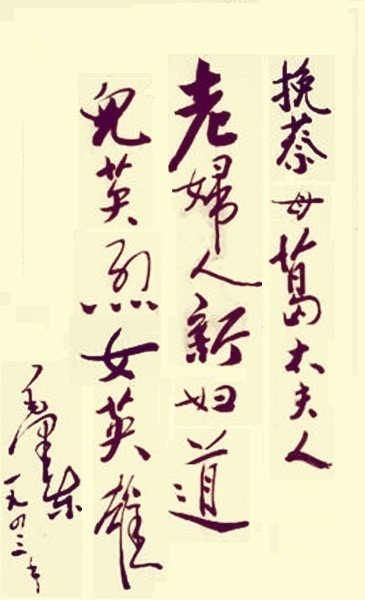 挽蔡母葛太夫人
老婦人新妇道
儿英烈女英雄
毛澤东
一九四三年